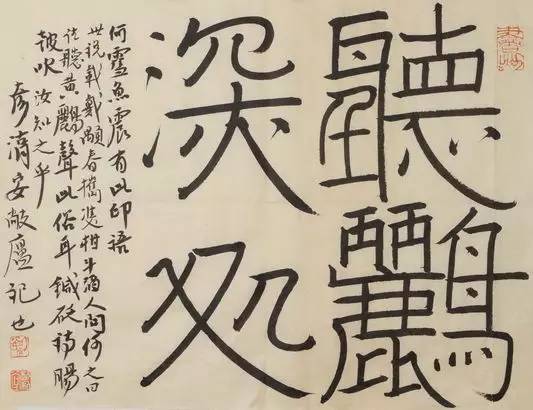 聽鸝
深処
何雪魚震有此印語
世說載戴顒春攜雙柑斗酒人問何之曰
往聽黃鸝聲此俗耳鍼砭詩腸
鼓吹汝知之乎
安敝廬記也